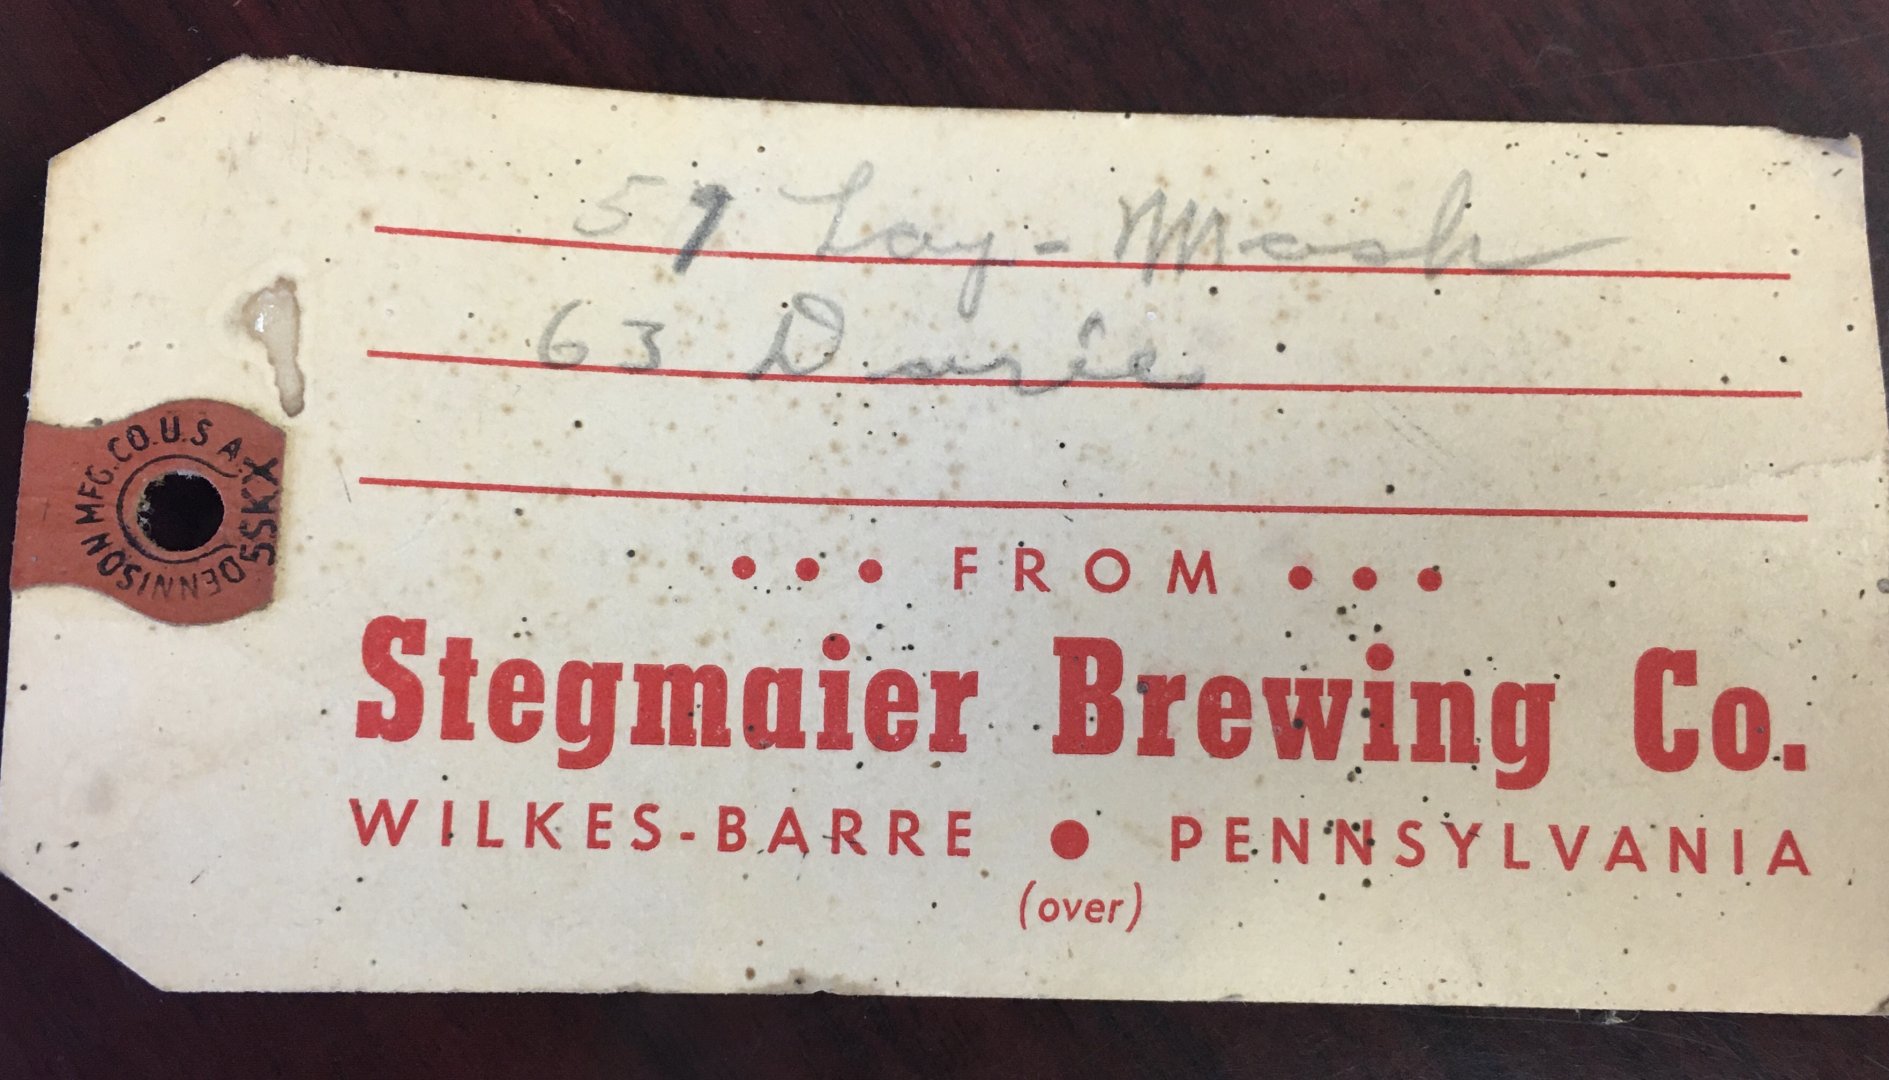 57 Lay-Mash
63
DENNISON MFG.CO.U.S.A.
5SKX
••• FROM •••
Stegmaier Brewing Co.
WILKES-BARRE • PENNSYLVANIA
(over)